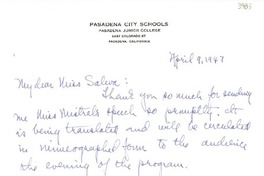 PASADENA CITY SCHOOLS
PASADENA JUNIOR COLLEGE
EAST COLORADO ST
PASADENA, CALIFORNIA
April 9, 1947
My dear Miss Salva:
Thank you so much for sending
me Miss Mistral's speech so promptly. It
is being translated and will be circulated
in mimeographed form to the audience
the evening of the program.